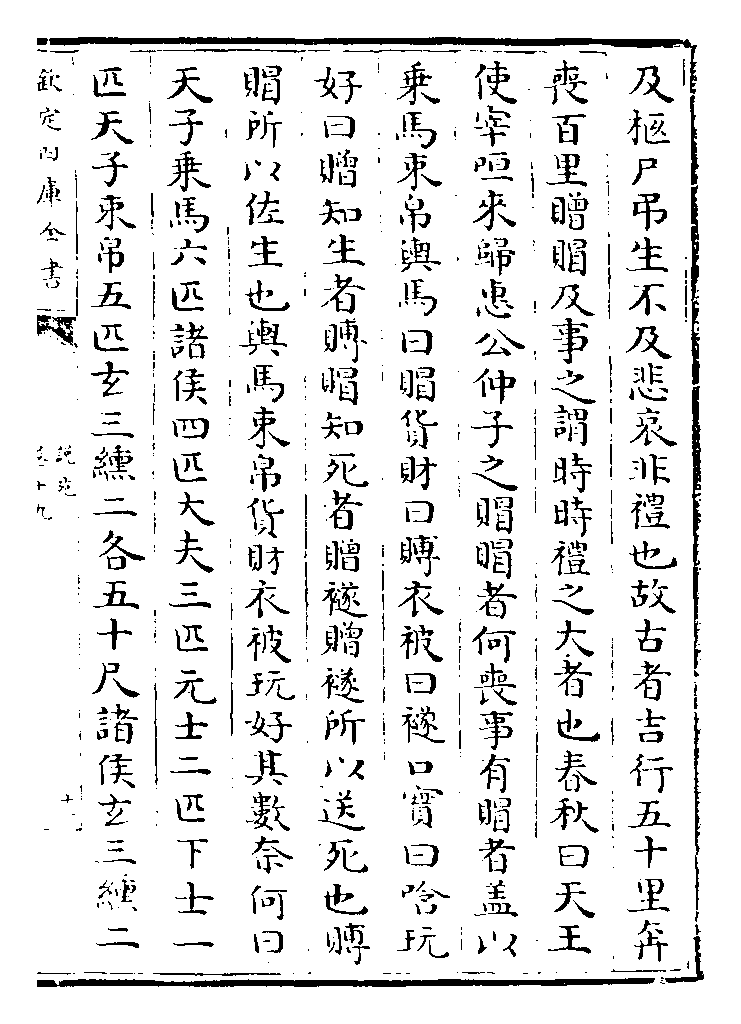 及柩尸弔生不及悲哀非禮也故古者吉行五十里奔
喪百里贈賵及事之謂時時禮之大者也春秋曰天王
使宰咺來歸惠公仲子之賵賵者何喪事有賵者盖以
乗馬束帛輿馬曰賵貨財曰賻衣被曰襚口實曰唅玩
好曰贈知生者賻賵知死者贈襚贈襚所以送死也賻
賵所以佐生也輿馬束帛貨財衣被玩好其數奈何曰
天子乗馬六匹諸侯四匹大夫三匹元士二匹下士一
匹天子束帛五匹玄三纁二各五十尺諸侯玄三纁二
欽定四庫全書
說苑
卷十九
十